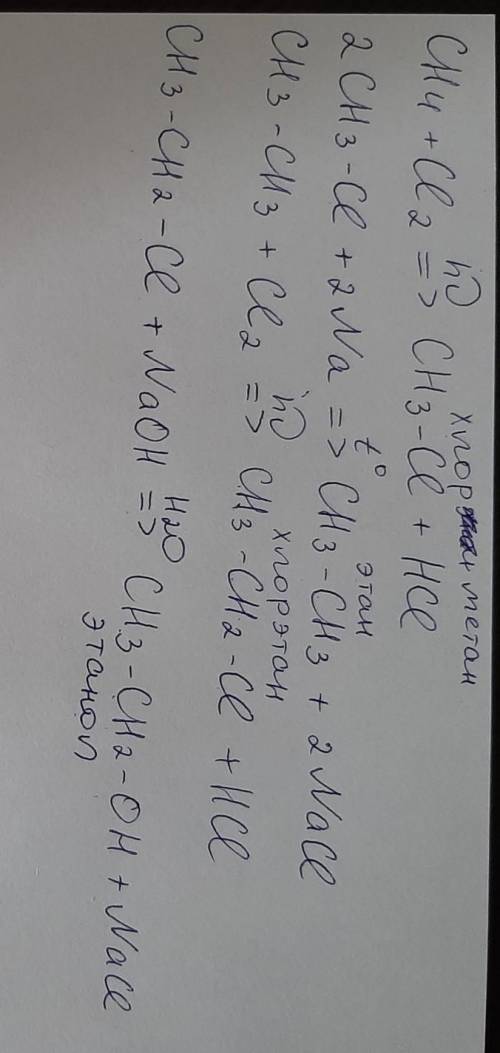 CH4 + Cl2 =>hν CH3-Cl + HCl
хлорметан
2CH3-Cl + 2Na =>t° CH3-CH3 + 2NaCl
этан
CH3-CH3 + Cl2 =>hν CH3-CH2-Cl + HCl
хлорэтан
CH3-CH2-Cl + NaOH =>H2O CH3-CH2-OH + NaCl
этанол